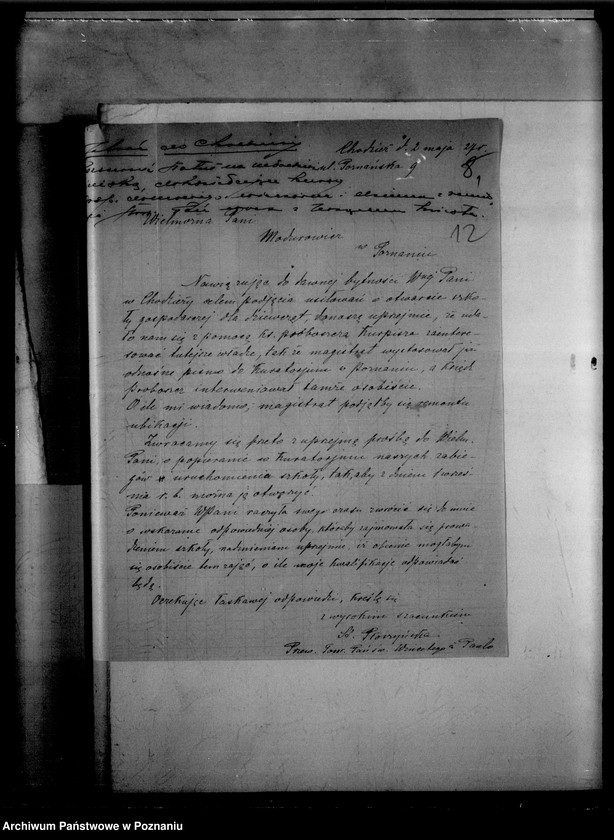 Chodzież d. 2 maja 27r.
ul. Poznańska 9
8,
12
Wielmożna Pani
Modurowicz
w Poznaniu
Nawiązując do dawnej bytności Wnej Pani
w Chodzieży celem podjęcia usiłowań o otwarcie szko-
ły gospodarczej dla dziewcząt, donoszę uprzejmie, że uda-
ło nam się z pomocą ks. proboszcza zaintere-
sować tutejsze władze, tak że magistrat wystosował już
odnośne pismo do Kuratorjum w Poznaniu, a ksiądz
proboszcz interweniował tamże osobiście.
O ile mi wiadomo, magistrat podjąłby się remontu
ubikacji.
Zwracamy się przeto z uprzejmą prośbą do Wielm.
Pani, o popieranie w Kuratorjum naszych zabie-
gów o uruchomienie szkoły, tak, aby z dniem 1 wrześ-
nia r. b. można ją otworzyć.
Ponieważ WPani raczyła swego czasu zwrócić się do mnie
o wskazanie odpowiedniej osoby, któraby zajmowała się prowa-
dzeniem szkoły, nadmieniam uprzejmie, iż obecnie mogłabym
się osobiście tem zająć, o ile moje kwalifikacje odpowiadać
będą.
Oczekując łaskawej odpowiedzi, kreślę się
z wysokim szacunkiem
Przew. Tow. Pań św. Wincentego à Paulo
Archiwum Państwowe w Poznaniu